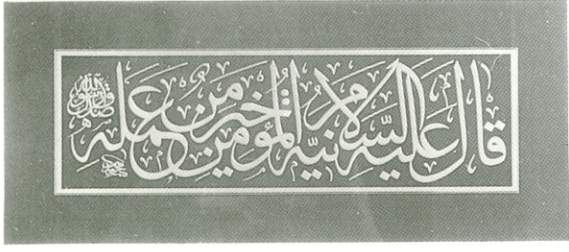 قال عليه السلام نية المؤمن خير من عمله